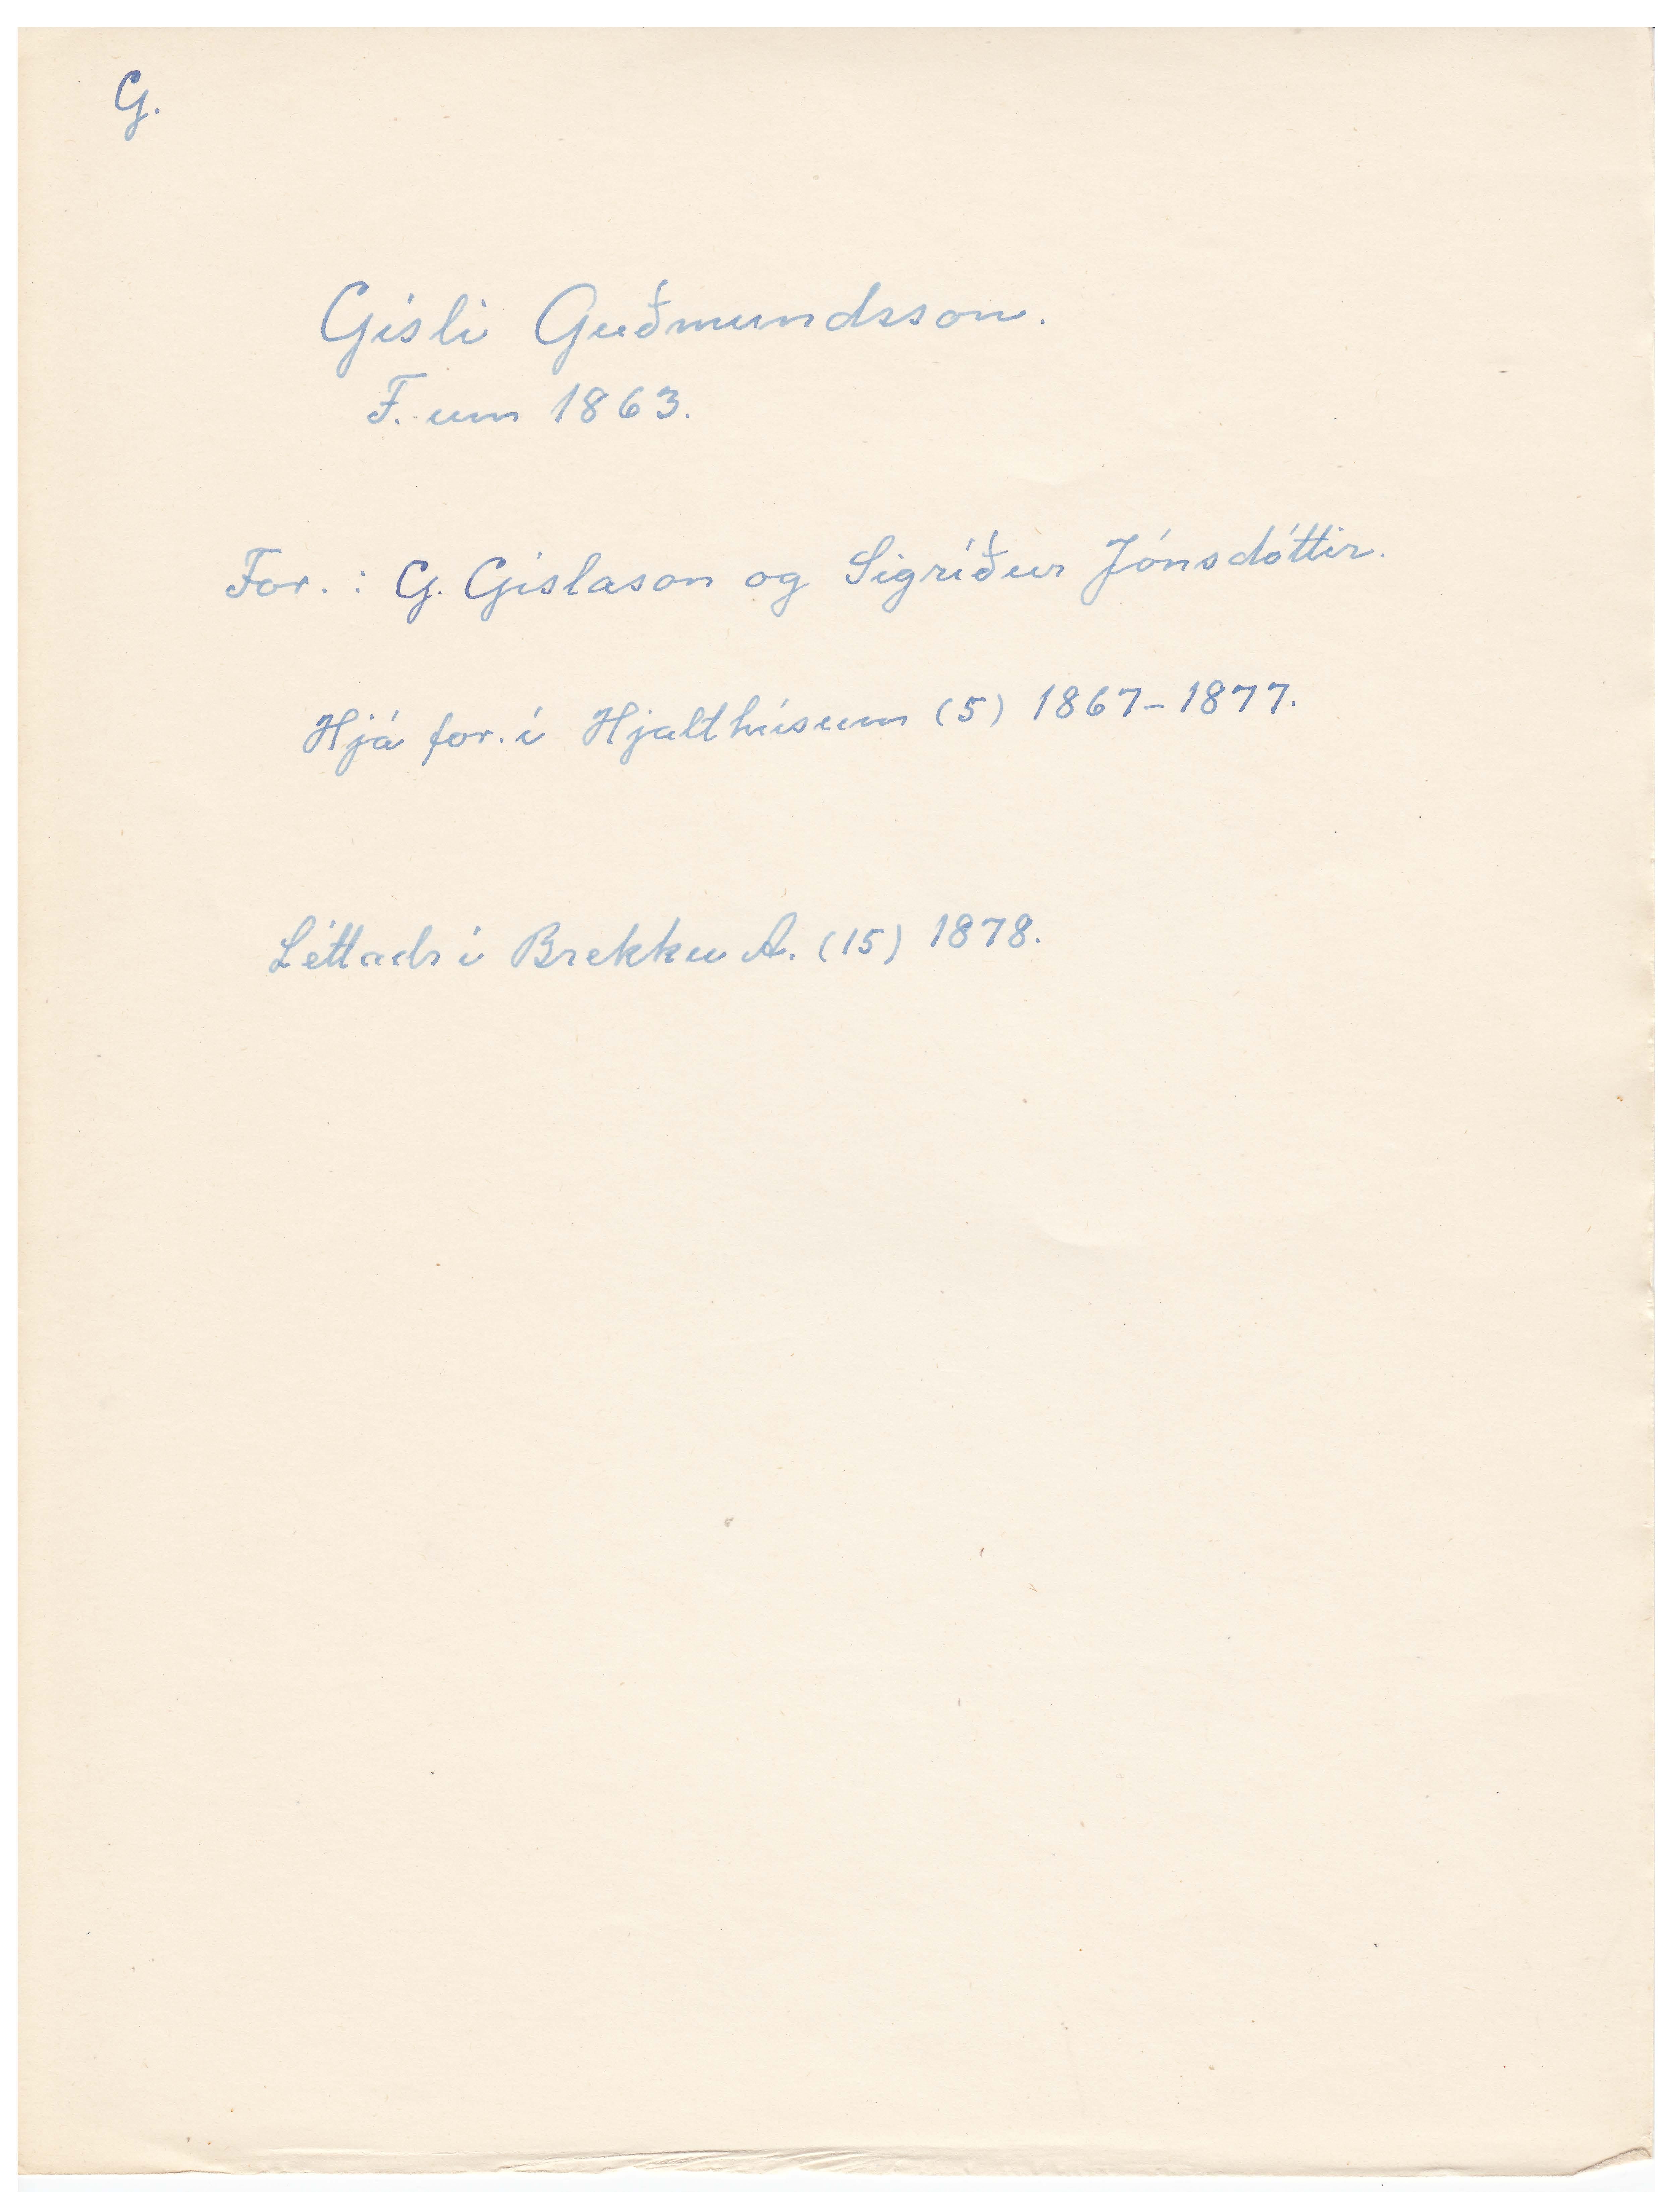 G.
Gísli Guðmundsson.
F. um 1863.
For. : G. Gíslason og Sigríður Jónsdóttir.
Hjá for. í Hjalthúsum (5) 1867-1877.
Léttadr í Brekku A. (15) 1878.